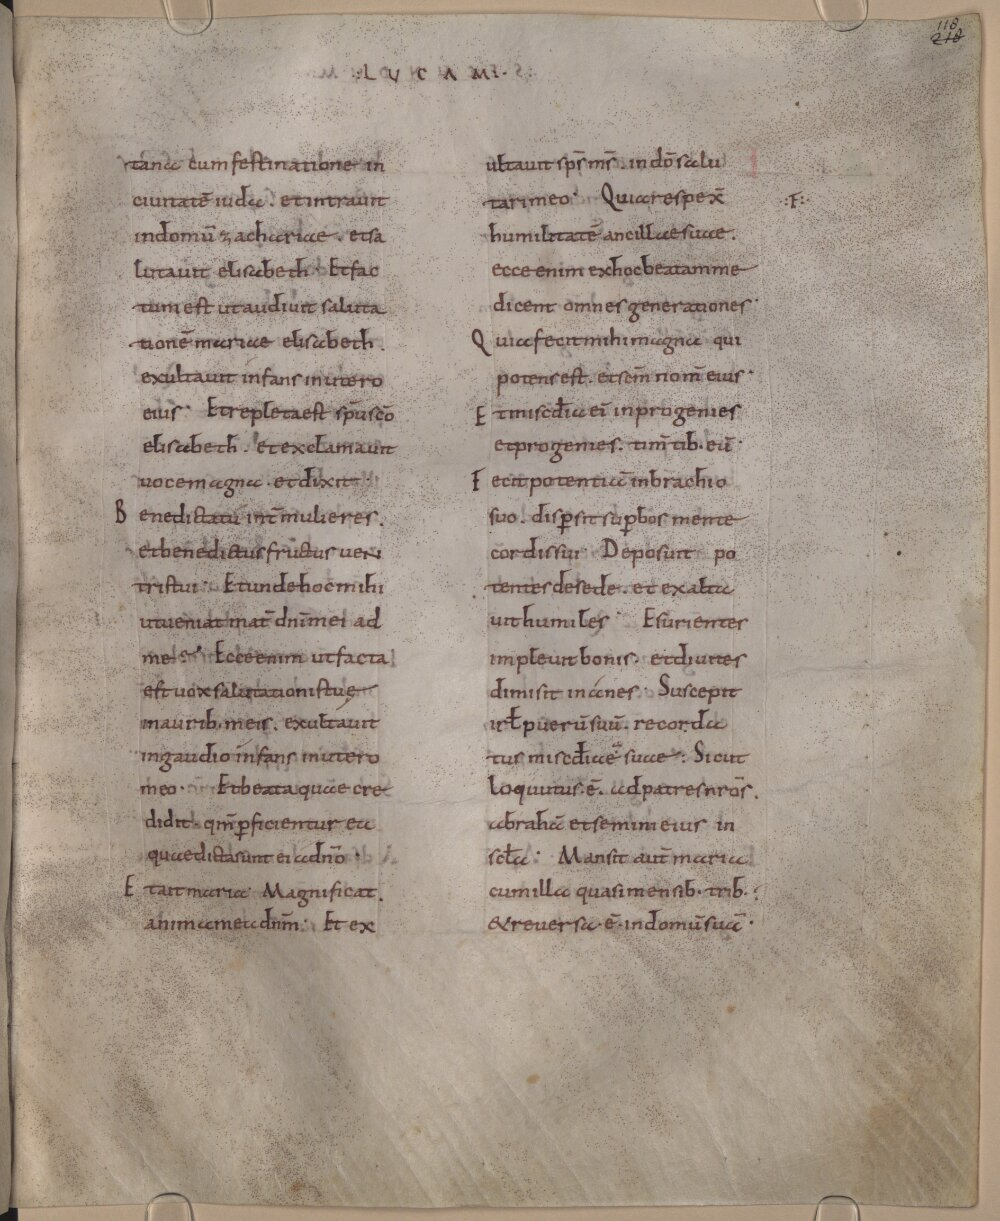 118
218
LVCAM·
tana cum festinatione in
ciuitatē iuda . et intrauit
indomū zachariae . et sa
lutauit elisabeth · Et fac
tum est ut audiuit saluta
tionē mariae elisabeth .
exultauit infans inutero
eius · Et repleta est sp̄u sc̄o
elisabeth . et exclamauit
uoce magna . et dixit ·
Benedicta tū int̄ mulieres .
et benedictus fructus uen
tris tui · Et unde hoc mihi
ut ueniat mat̄ dn̄i mei ad
me · Ecce enim ut facta
est uox salutationis tuę
in aurib · meis . exultauit
ingaudio infans inutero
meo · Et beata quae cre
didit · qm̄ ꝑficientur ea
quae dicta sunt ei a dn̄o ·
Et ait maria Magnificat .
anima mea dn̄m · Et ex
ultauit sp̄s m̄s . in dō salu
tari meo · Quia respex̄
humilitatē ancillae suae .
ecce enim exhoc beatam me
dicent omnes generationes ·
Quia fecit mihi magna qui
potens est . et sc̄m nom̄ eius ·
Et misc̄dia ei' inprogenies
et progenies . tim̄tib · eū ·
Fecit potentiā inbrachio
suo . disꝑsit suꝑbos mente
cordis sui · Deposuit po
tentes de sede . et exalta
uit humiles · Esurientes
impleuit bonis . et diuites
dimisit inanes · Suscepit
isrł puerū suū . recorda
tus misc̄diae suae · Sicut
loquutus · ē · ad patres nr̄os .
abrahā et semini eius in
sc̄la · Mansit aut̄ maria
cum illa quasi mensib · trib ·
& reuersa · ē · in domū suā ·
·F·